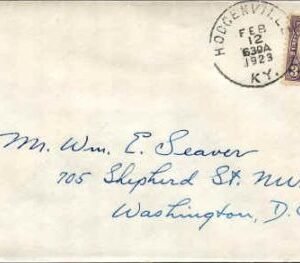 HODGENVILLE
FEB
12
630A
1923
KY.
Mr. Wm. E. Seaver
705 Shepherd St. NW
Washington, D.C